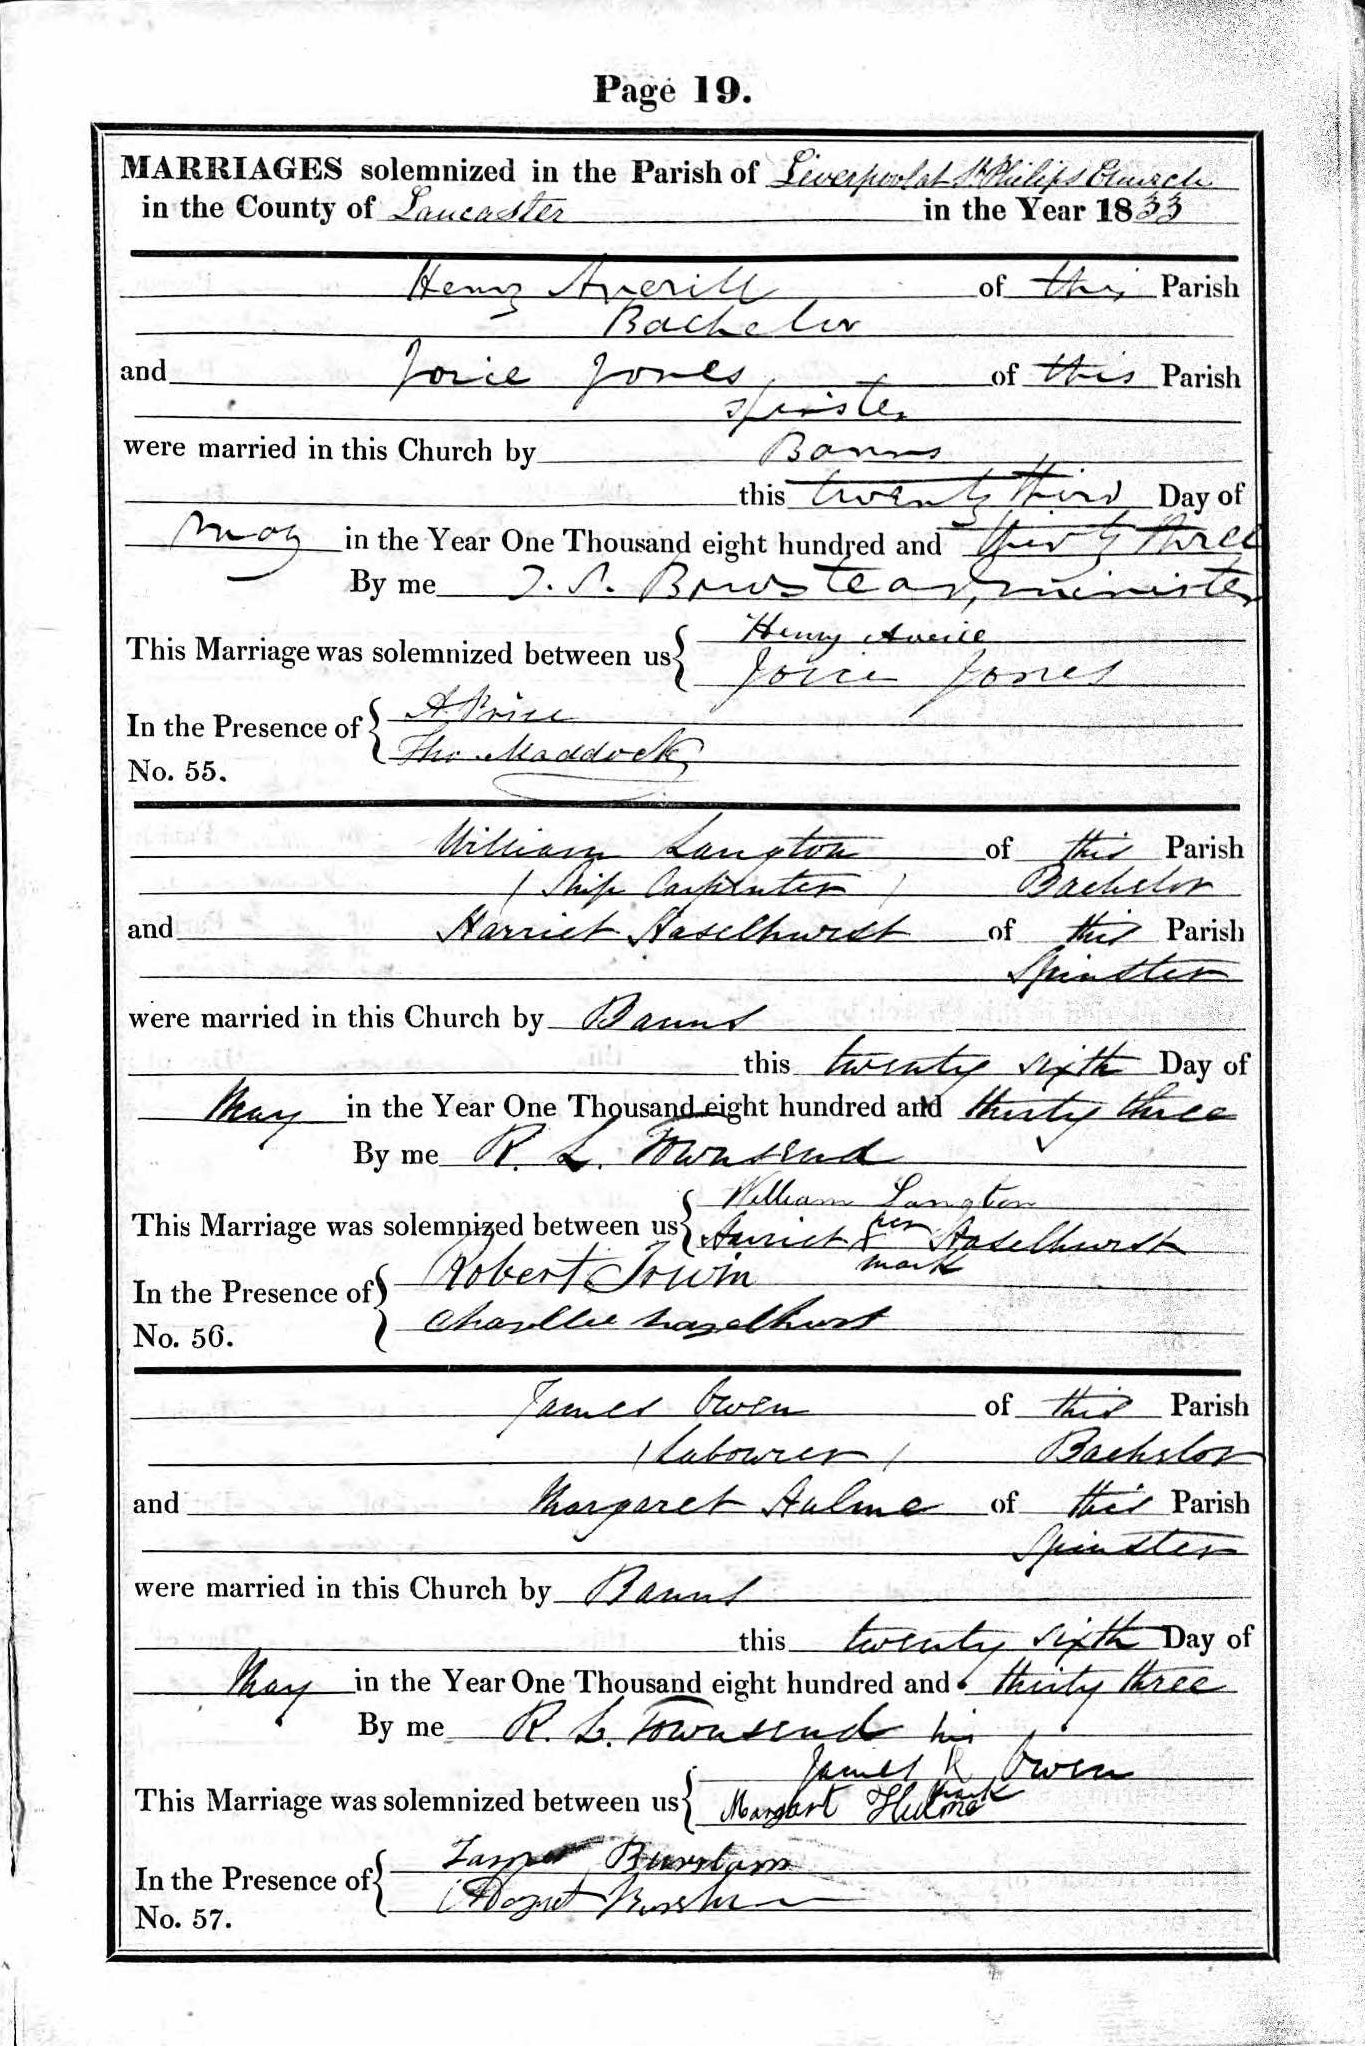 Page 19.
MARRIAGES solemnized in the Parish of Liverpool at St Philips Church
in the County of Lancaster in the Year 1833
Henry Averill of this Parish
Bachelor
and Joice Jones of this Parish
Spinster
were married in this Church by Banns
this twenty third Day of
May in the Year One Thousand eight hundred and thirty three
By me J. S. Bowstead, minister
This Marriage was solemnized between us { Henry Averill
Joice Jones
In the Presence of { A Price
Tho Maddock
No. 55.
William Langton of this Parish
(Ship Carpenter) Bachelor
and Harriet Haselhurst of this Parish
Spinster
were married in this Church by Banns
this twenty sixth Day of
May in the Year One Thousand eight hundred and thirty three
By me R. L. Townsend
This Marriage was solemnized between us { William Langton
Harriet X her mark Haselhurst
In the Presence of { Robert Irwin
hazelhurst
No. 56.
James Owen of this Parish
(Labourer) Bachelor
and Margaret Hulme of this Parish
Spinster
were married in this Church by Banns
this twenty sixth Day of
May in the Year One Thousand eight hundred and thirty three
By me R. L. Townsend
This Marriage was solemnized between us { James X his mark Owen
Margart Hulme
In the Presence of {
No. 57.